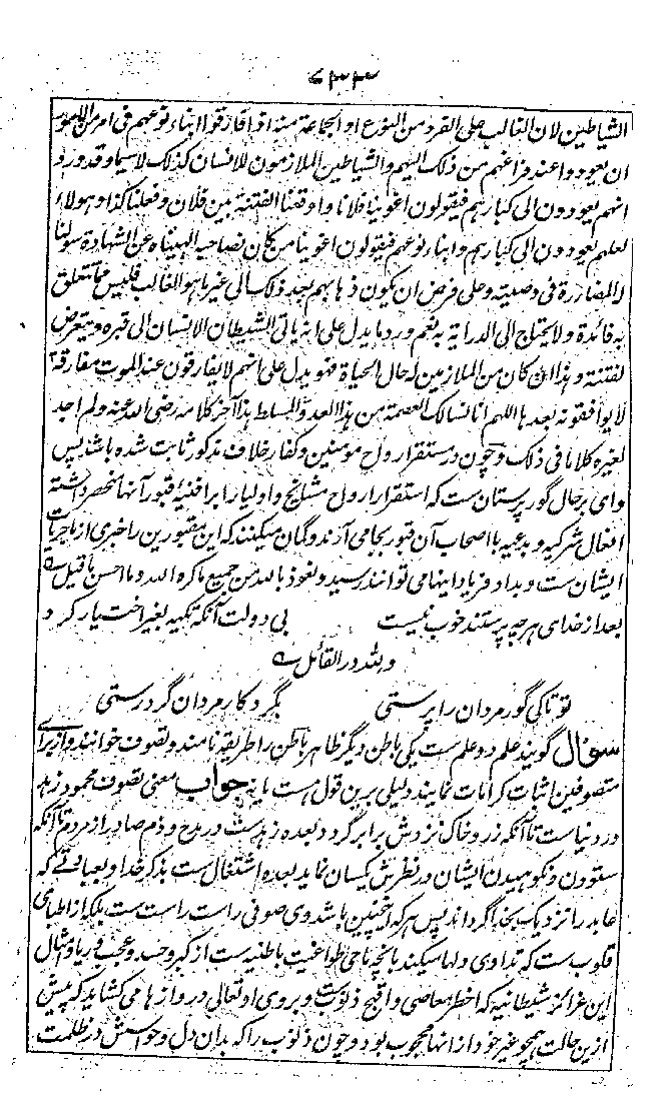 الشياطين لان الغالب على الفرد من النوع او الجماعة منه اذا فارقوا ابناء نوعهم فى امر من الامور
ان يعودوا عند فراغهم من ذلك اليهم والشياطين الملازمون للانسان كذلك لا سيما وقد ورد
انهم يعودون الى كبارهم فيقولون اغوينا فلانا واوقعنا الفتنة بين فلان وفعلنا كذا وهولاء
لعلهم يعودون الى كبارهم وابناء نوعهم فيقولون اغوينا من كان نصاحبه الهيناه عن الشهادة سولنا
له المضاررة فى وصيته وعلى فرض ان يكون ذهابهم بعد ذلك الى غير ما هو الغالب فليس مما تتعلق
به فائدة ولا يحتاج الى الدراية به نعم ورد ما يدل على انه ياتى الشيطان الانسان الى قبره ويتعرض
لفتنته وهذا ان كان من الملازمين له حال الحياة فهو يدل على انهم لا يفارقون عند الموت مفارقة
لا يوافقونه بعدها اللهم انا نسالك العصمة من هذا العدو المسلط هذا آخر كلامه رضى الله عنه ولم اجد
لغيره كلاما فى ذلك وچون در مستقر ارواح مومنين وكفار خلاف مذكور ثابت شده باشد پس
واى برحال گور پرستان ست كه استقرار ارواح مشائخ واوليا را بر افنيهٔ قبور آنها منحصر داشته
افعال شركيه وبدعيه با اصحاب آن قبور بجا مى آرند وگمان ميكنند كه اين مقبورين را خبرى از ماجريات
ايشان ست وبداد و فرياد اينها مى توانند رسيد ونعوذ بالله من جميع ما كره الله وما احسن ما قيل ے
بعد از خداى هر چه پرستند خوب نيست بى دولت آنكه تكيه بغير اختيار كرد
ولله در القائل ے
تو تاكى گور مردان را پرستى بگرد كار مردان گرد رستى
سوال گويند علم دو علم ست يكى باطن ديگر ظاهر باطن را طريقه نامند وتصوف خوانند واز براے
متصوفين اثبات كرامات نمايند دليلى برين قول هست يا نه جواب معنى تصوف محمود زهد
در دنياست تا آنكه زر وخاك نزدش برابر گردد بعده زهدست در مدح وذم صادر از مردم تا آنكه
ستودن ونكوهيدن ايشان در نظرش يكسان نمايد بعده اشتغال ست بذكر خدا وبعباداتے كه
عابد را نزديك بخدا گرداند پس هر كه اينچنين باشد وى صوفى راست راست ست بلكه از اطباى
قلوب ست كه تداوى دلها ميكند بانچه ماحى طواغيت باطنيه ست از كبر وحسد وعجب وريا وامثال
اين غرائز شيطانيه كه اخطر معاصى واقبح ذنوب ست وبروى او تعالى دروازها مى كشايد كه پيش
ازين حالت همچو غير خود از انها محجوب بود وچون ذنوب را كه بدان دل وحواسش در ظلمت